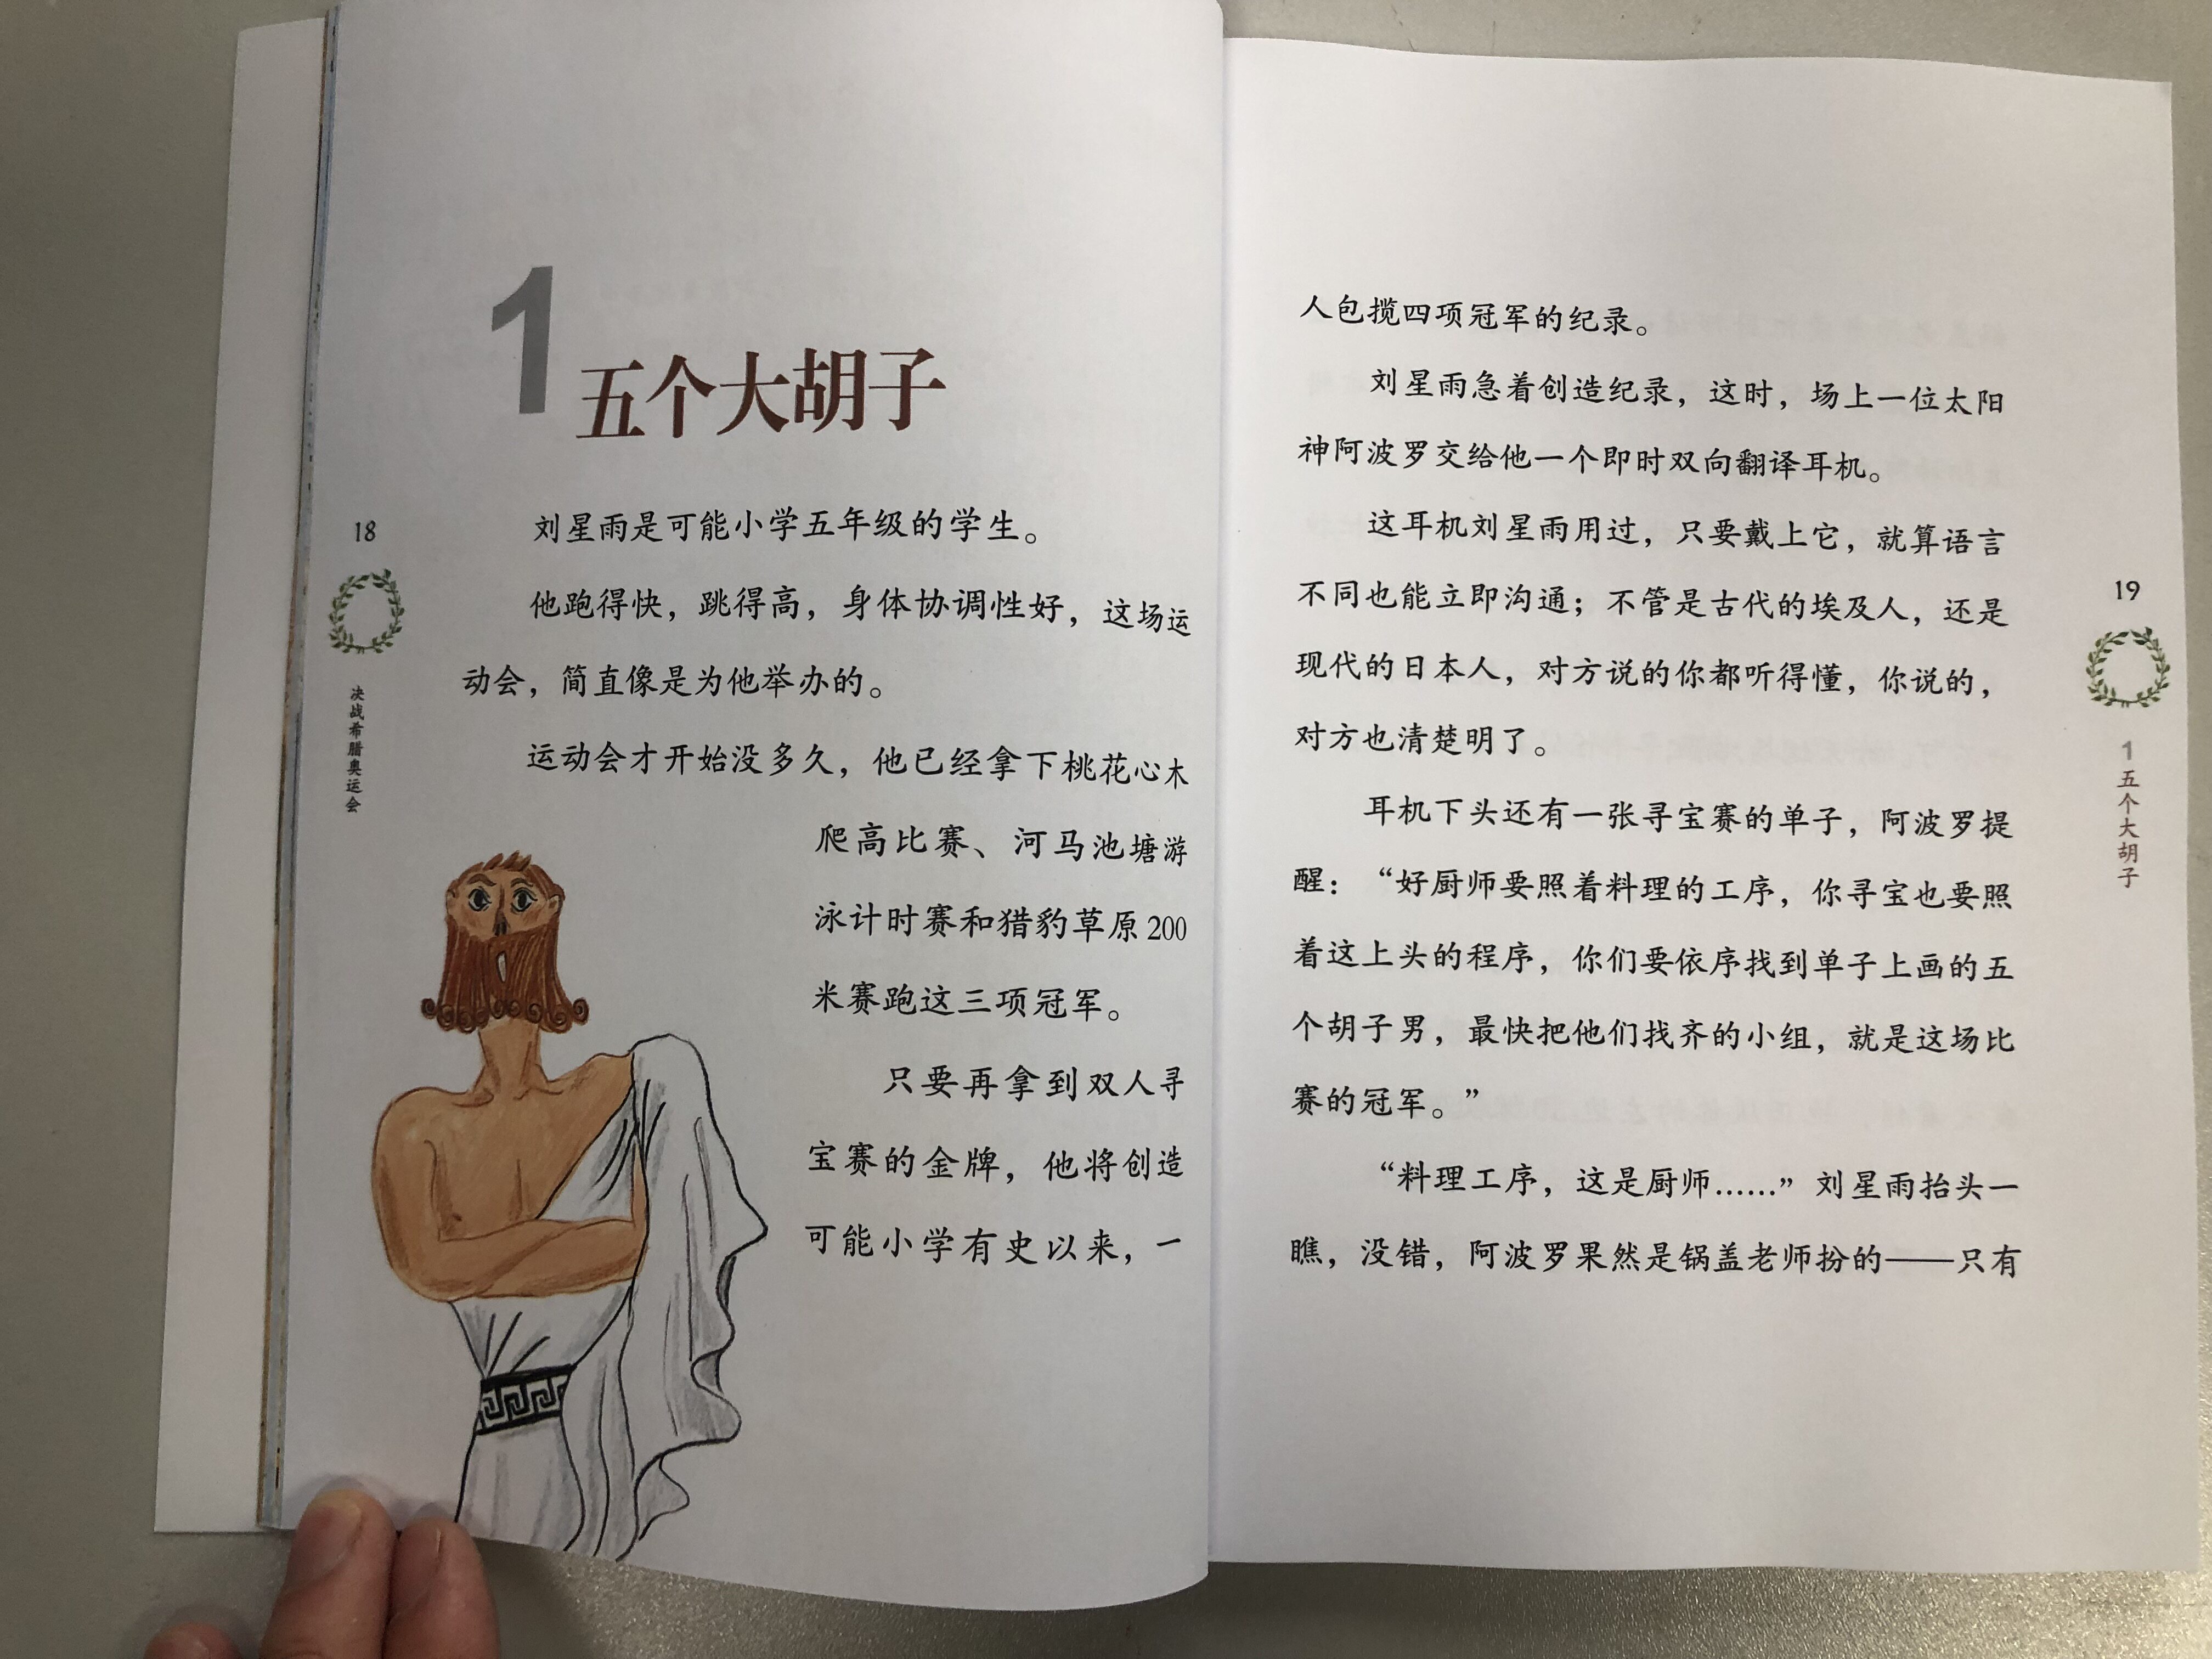 1
五个大胡子
刘星雨是可能小学五年级的学生。
他跑得快，跳得高，身体协调性好，这场运
动会，简直像是为他举办的。
运动会才开始没多久，他已经拿下桃花心木
爬高比赛、河马池塘游
泳计时赛和猎豹草原200
米赛跑这三项冠军。
只要再拿到双人寻
宝赛的金牌，他将创造
可能小学有史以来，一
18
决战希腊奥运会
人包揽四项冠军的纪录。
刘星雨急着创造纪录，这时，场上一位太阳
神阿波罗交给他一个即时双向翻译耳机。
这耳机刘星雨用过，只要戴上它，就算语言
不同也能立即沟通；不管是古代的埃及人，还是
现代的日本人，对方说的你都听得懂，你说的，
对方也清楚明了。
耳机下头还有一张寻宝赛的单子，阿波罗提
醒：“好厨师要照着料理的工序，你寻宝也要照
着这上头的程序，你们要依序找到单子上画的五
个胡子男，最快把他们找齐的小组，就是这场比
赛的冠军。”
“料理工序，这是厨师……”刘星雨抬头一
瞧，没错，阿波罗果然是锅盖老师扮的——只有
19
1 五个大胡子